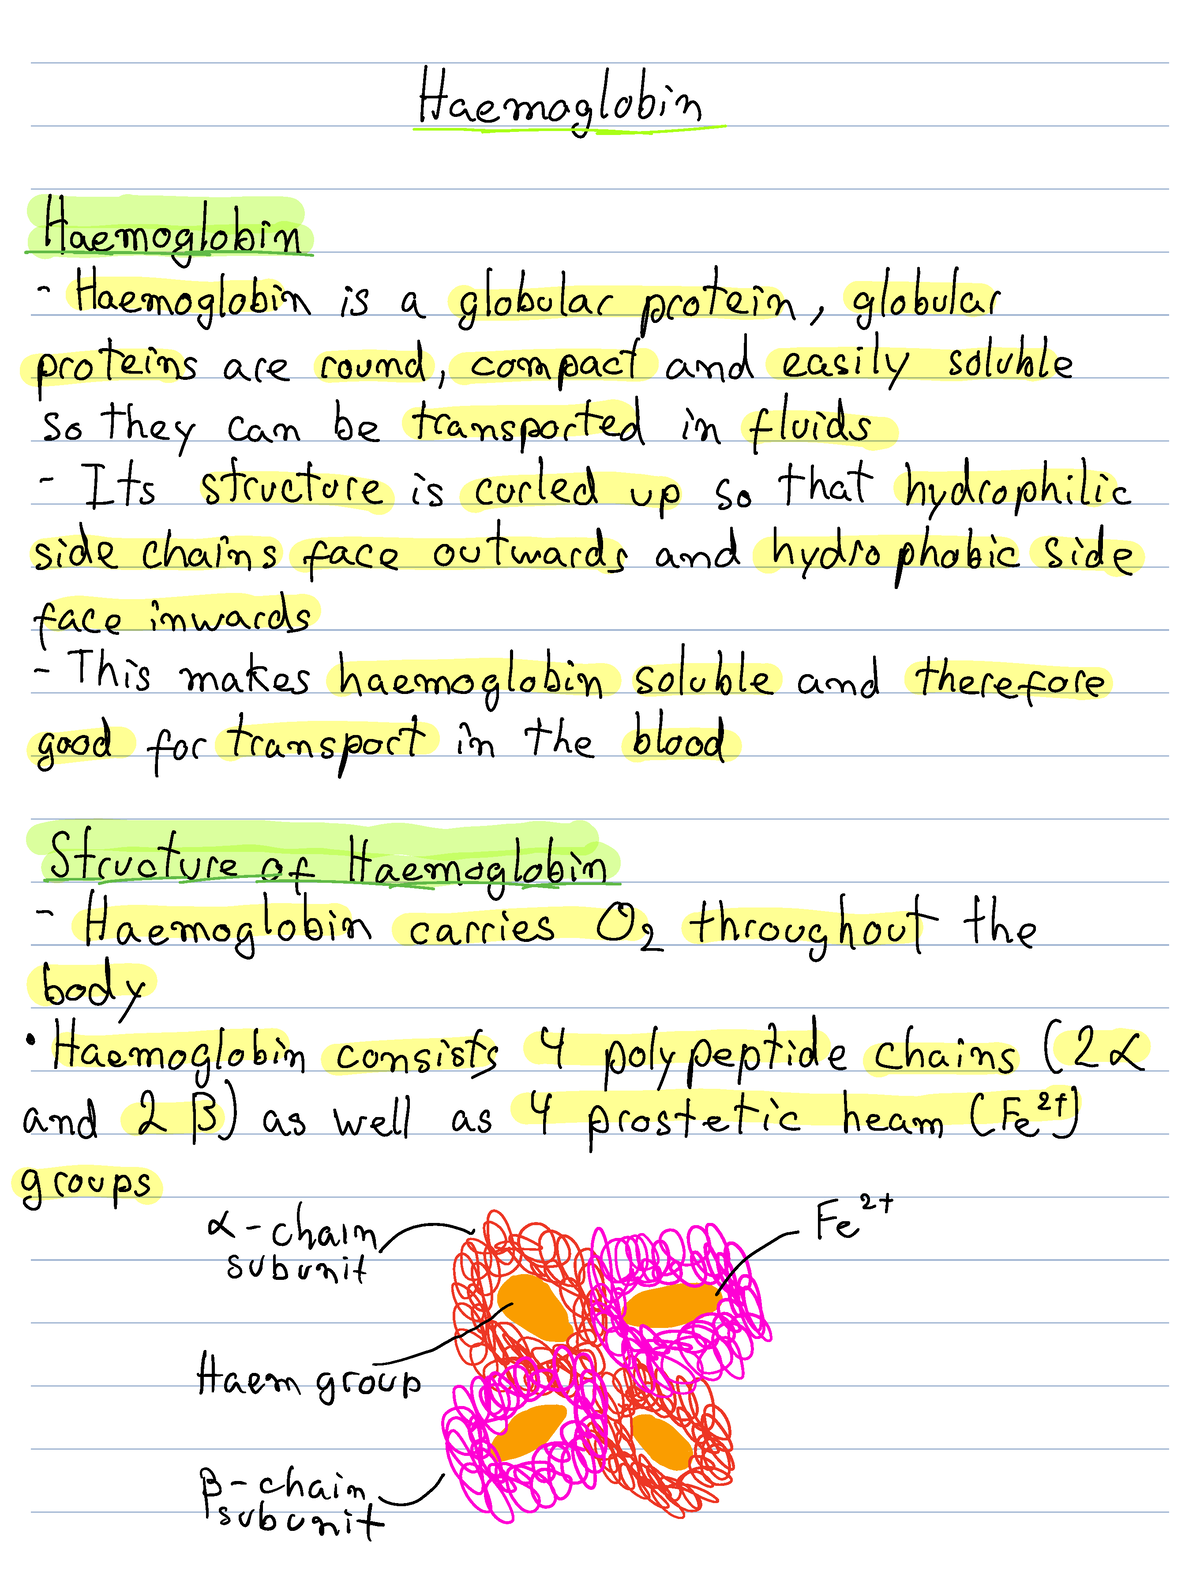 Haemoglobin
Haemoglobin
- Haemoglobin is a globular protein, globular
proteins are round, compact and easily soluble
so they can be transported in fluids
- Its structure is curled up so that hydrophilic
side chains face outwards and hydrophobic side
face inwards
- This makes haemoglobin soluble and therefore
good for transport in the blood
Structure of Haemoglobin
- Haemoglobin carries O₂ throughout the
body
• Haemoglobin consists 4 polypeptide chains (2α
and 2 β) as well as 4 prostetic heam (Fe²⁺)
groups
α-chain
subunit
Fe²⁺
Haem group
β-chain
subunit